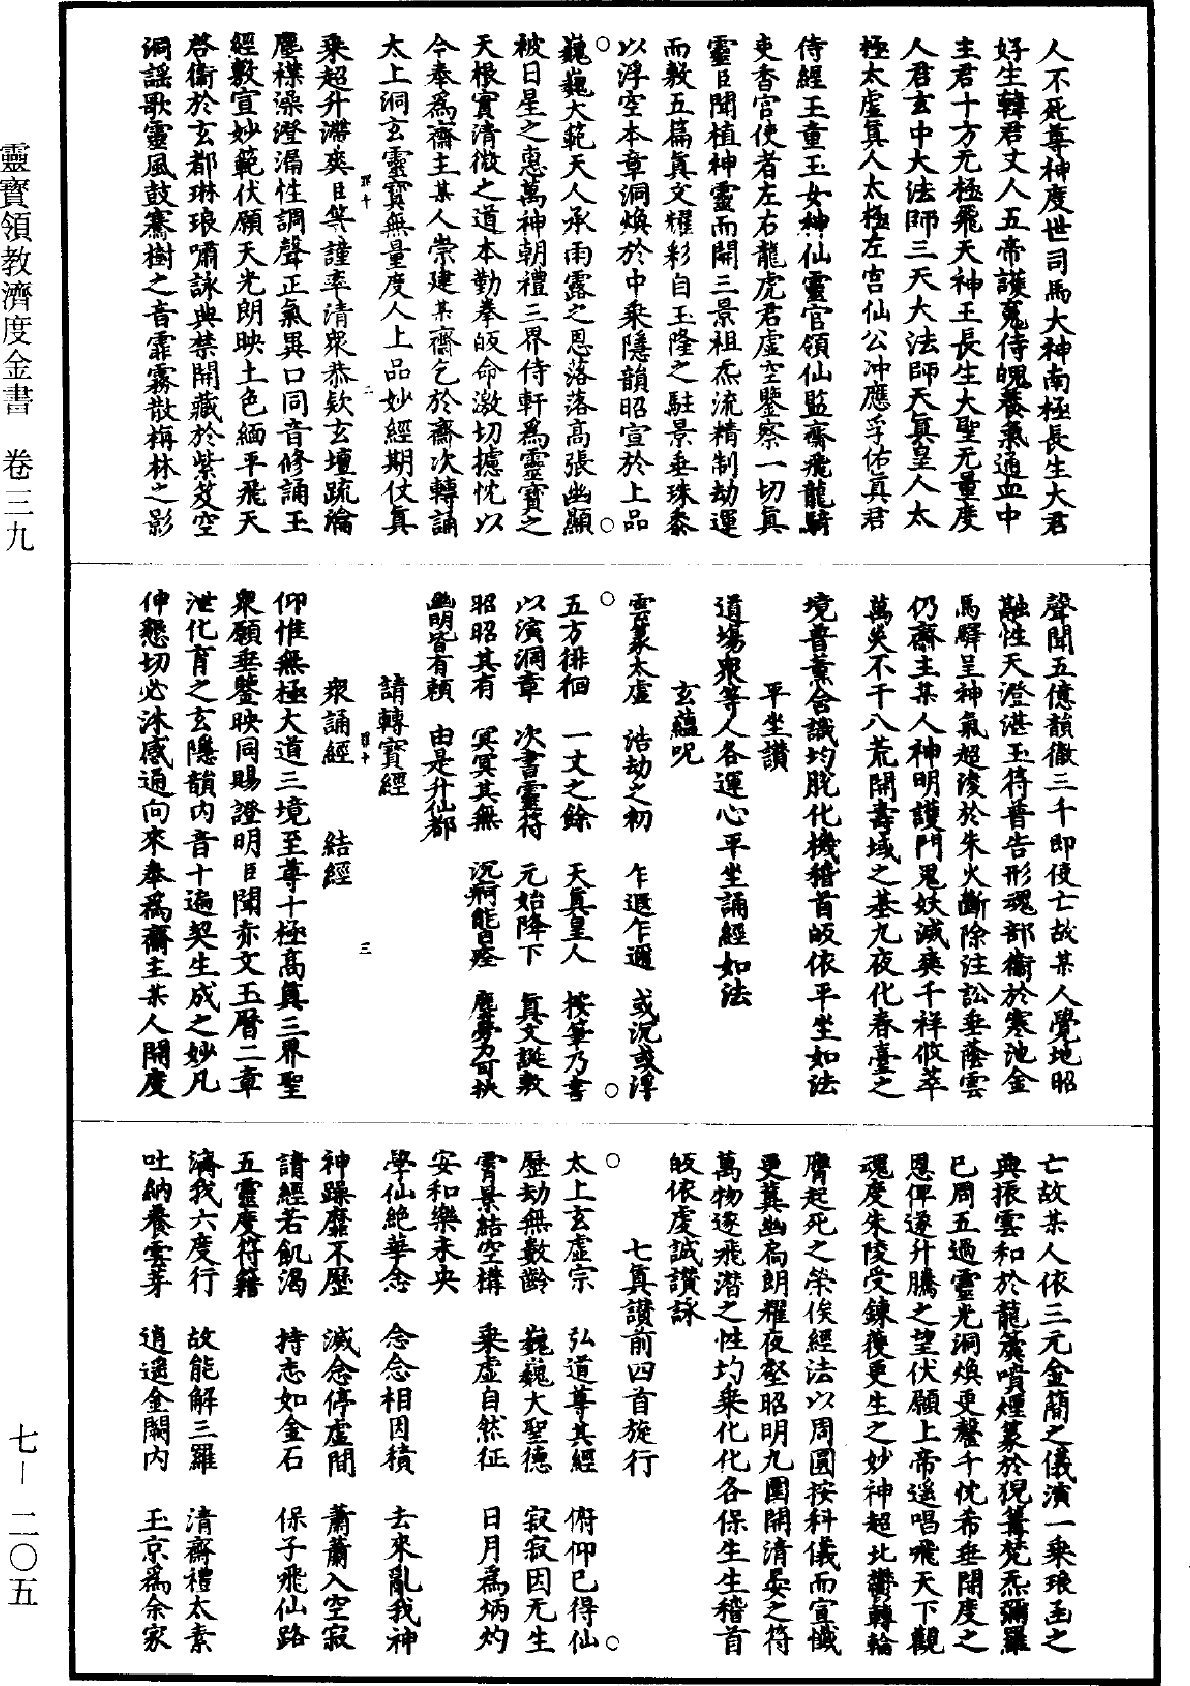 人不死尊神度世司馬大神南極長生大君
好生韓君丈人五帝護魂侍魄養氣通血中
主君十方无極飛天神王長生大聖无量度
人君玄中大法師三天大法師天真皇人太
極太虛真人太極左宮仙公冲應孚佑真君
侍經玉童玉女神仙靈官領仙監齋飛龍騎
吏香官使者左右龍虎君虛空鑒察一切真
靈臣聞植神靈而開三景祖炁流精制劫運
而敷五篇真文耀彩自玉隆之駐景垂珠黍
以浮空本章洞煥於中乘隱韻昭宣於上品
巍巍大範天人承雨露之恩落落高張幽顯
被日星之惠萬神朝禮三界侍軒為靈寶之
天根實清微之道本勤拳皈命激切攄忱以
今奉為齋主某人崇建某齋乞於齋次轉誦
太上洞玄靈寶無量度人上品妙經期仗真
乘超升滯爽臣等謹率清眾恭欵玄壇疏瀹
塵襟澡澄漏性調聲正氣異口同音修誦玉
經敷宣妙範伏願天光朗映土色緬平飛天
啓衛於玄都琳琅嘯詠典禁開藏於紫笈空
洞謠歌靈風鼓騫樹之音霏霧散梅林之影
聲聞五億韻徹三千即使亡故某人覺地昭
融性天澄湛玉符普告形魂部衛於寒池金
馬驛呈神氣超淩於朱火斷除注訟垂蔭雲
仍齋主某人神明護門鬼妖滅爽千祥攸萃
萬災不干八荒開壽域之基九夜化春臺之
境普薰含識均脫化機稽首皈依平坐如法
平坐讚
道場眾等人各運心平坐誦經如法
玄蘊呪
雲篆太虛 浩劫之初 乍遐乍邇 或沉或浮
五方徘徊 一丈之餘 天真皇人 按筆乃書
以演洞章 次書靈符 元始降下 真文誕敷
昭昭其有 冥冥其無 沉痾能自痊 塵勞可扶
幽冥皆有賴 由是升仙都
請轉寶經
眾誦經 結經
仰惟無極大道三境至尊十極高真三界聖
眾願垂鑒映同賜證明臣聞赤文玉曆二章
泄化育之玄隱韻內音十遍契生成之妙凡
伸懇切必沐感通向來奉為齋主某人開度
亡故某人依三元金簡之儀演一乘琅函之
典振雲和於龍簇噴煙篆於猊篝梵炁彌羅
已周五過靈光洞煥更罄千忱希垂開度之
恩俾遂升騰之望伏願上帝遙唱飛天下觀
魂度朱陵受鍊獲更生之妙神超北鬱轉輪
膺起死之榮俟經法以周圓按科儀而宣懺
更冀幽扃朗耀夜壑昭明九圍開清晏之符
萬物遂飛潛之性均乘化化各保生生稽首
皈依虔誠讚詠
七真讚前四首旋行
太上玄虛宗 弘道尊其經 俯仰已得仙
歷劫無數齡 巍巍大聖德 寂寂因无生
霄景結空構 乘虛自然征 日月為炳灼
安和樂未央
學仙絕華念 念念相因積 去來亂我神
神躁靡不歷 滅念停虛間 蕭蕭入空寂
請經若飢渴 持志如金石 保子飛仙路
五靈度符籍
濟我六度行 故能解三羅 清齋禮太素
吐納養雲芽 逍遙金闕內 玉京為余家
靈寶領教濟度金書 卷三九
七—二〇五